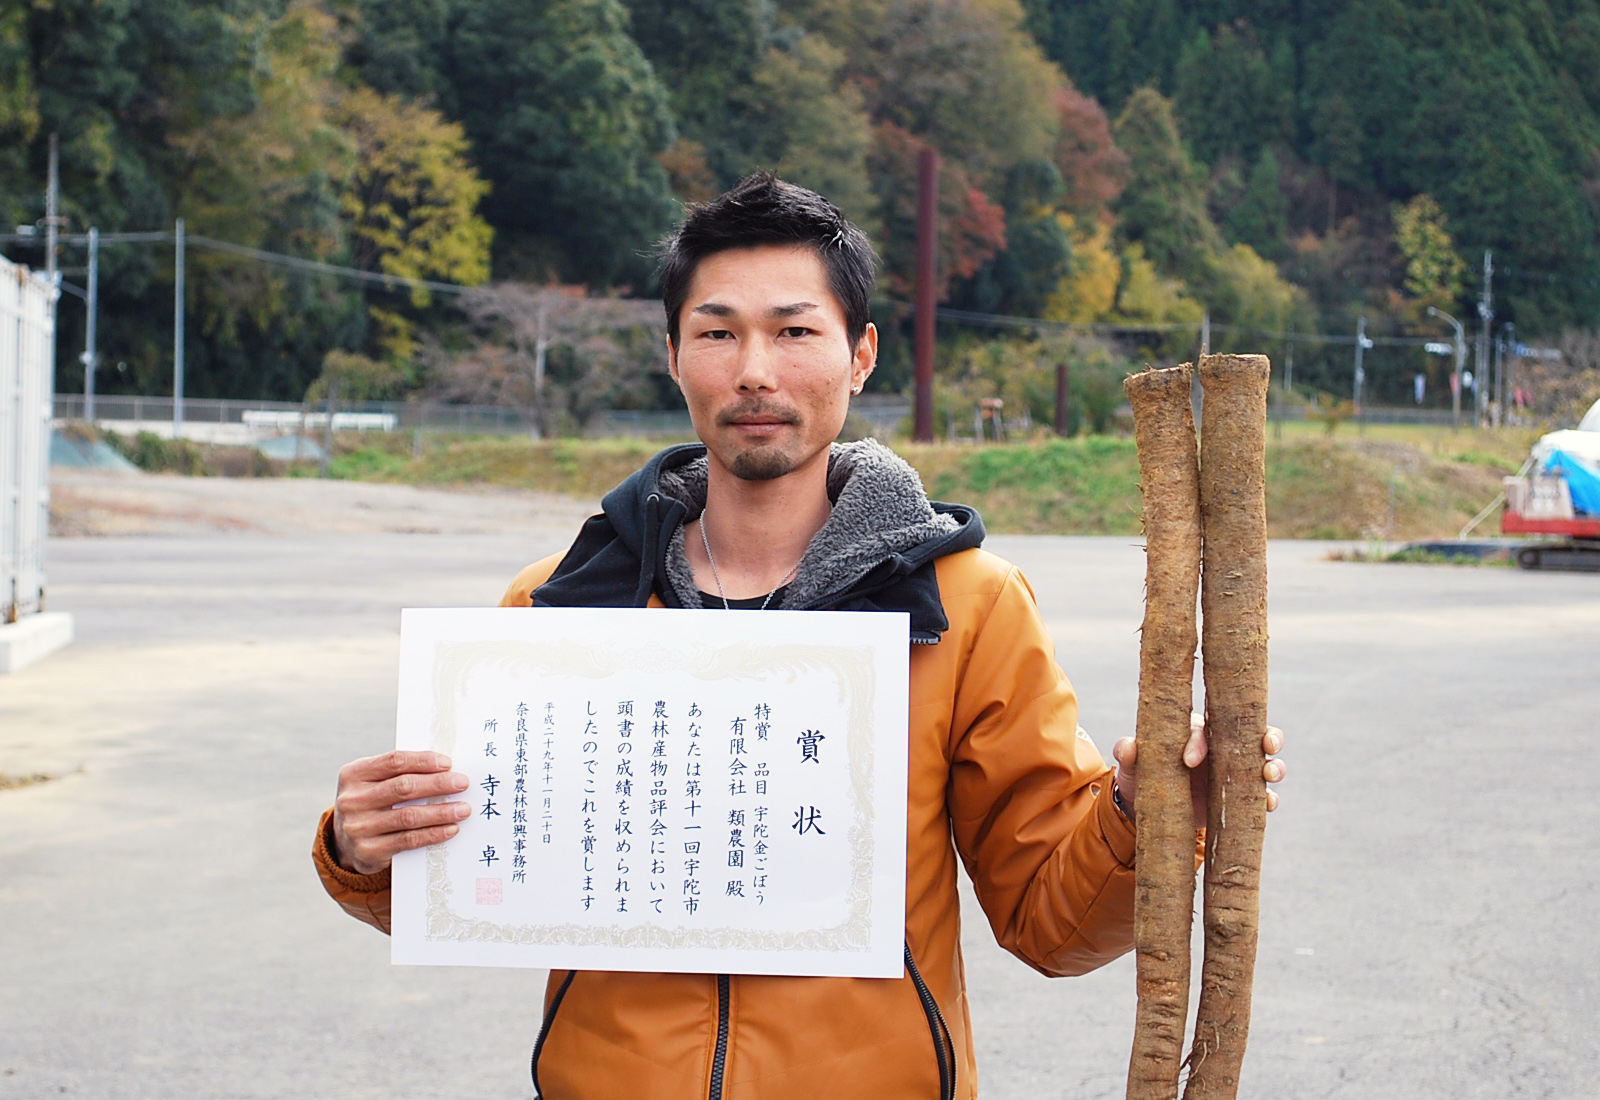 賞状
特賞 品目 宇陀金ごぼう
有限会社 類農園 殿
あなたは第十一回宇陀市
農林産物品評会において
頭書の成績を収められま
したのでこれを賞します
平成二十九年十一月二十日
奈良県東部農林振興事務所
所長 寺本 卓